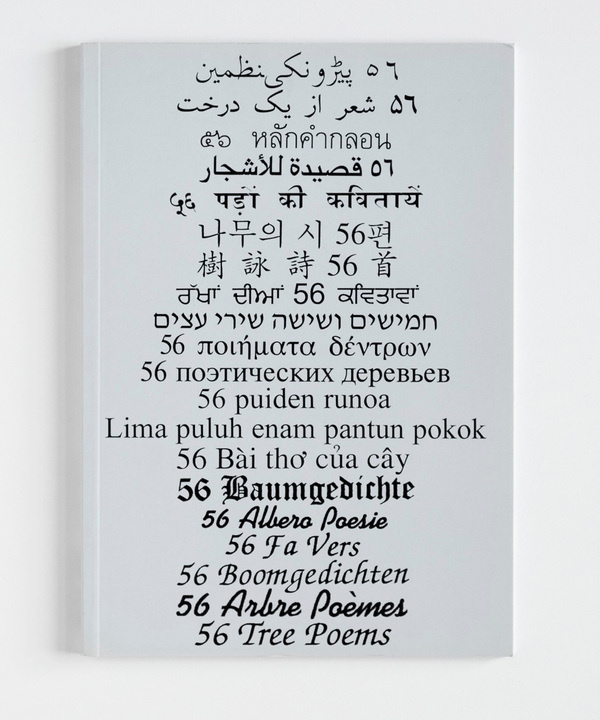 ۵٦ پیڑونکی نظمین
۵۶ شعر از یک درخت
๕๖ หลักคำกลอน
٥٦ قصيدة للأشجار
५६ पड़ों की कवितायें
나무의 시 56편
樹 詠 詩 56 首
ਰੁੱਖਾਂ ਦੀਆਂ 56 ਕਵਿਤਾਵਾਂ
חמישים ושישה שירי עצים
56 ποιήματα δέντρων
56 поэтических деревьев
56 puiden runoa
Lima puluh enam pantun pokok
56 Bài thơ của cây
56 Baumgedichte
56 Albero Poesie
56 Fa Vers
56 Boomgedichten
56 Arbre Poèmes
56 Tree Poems